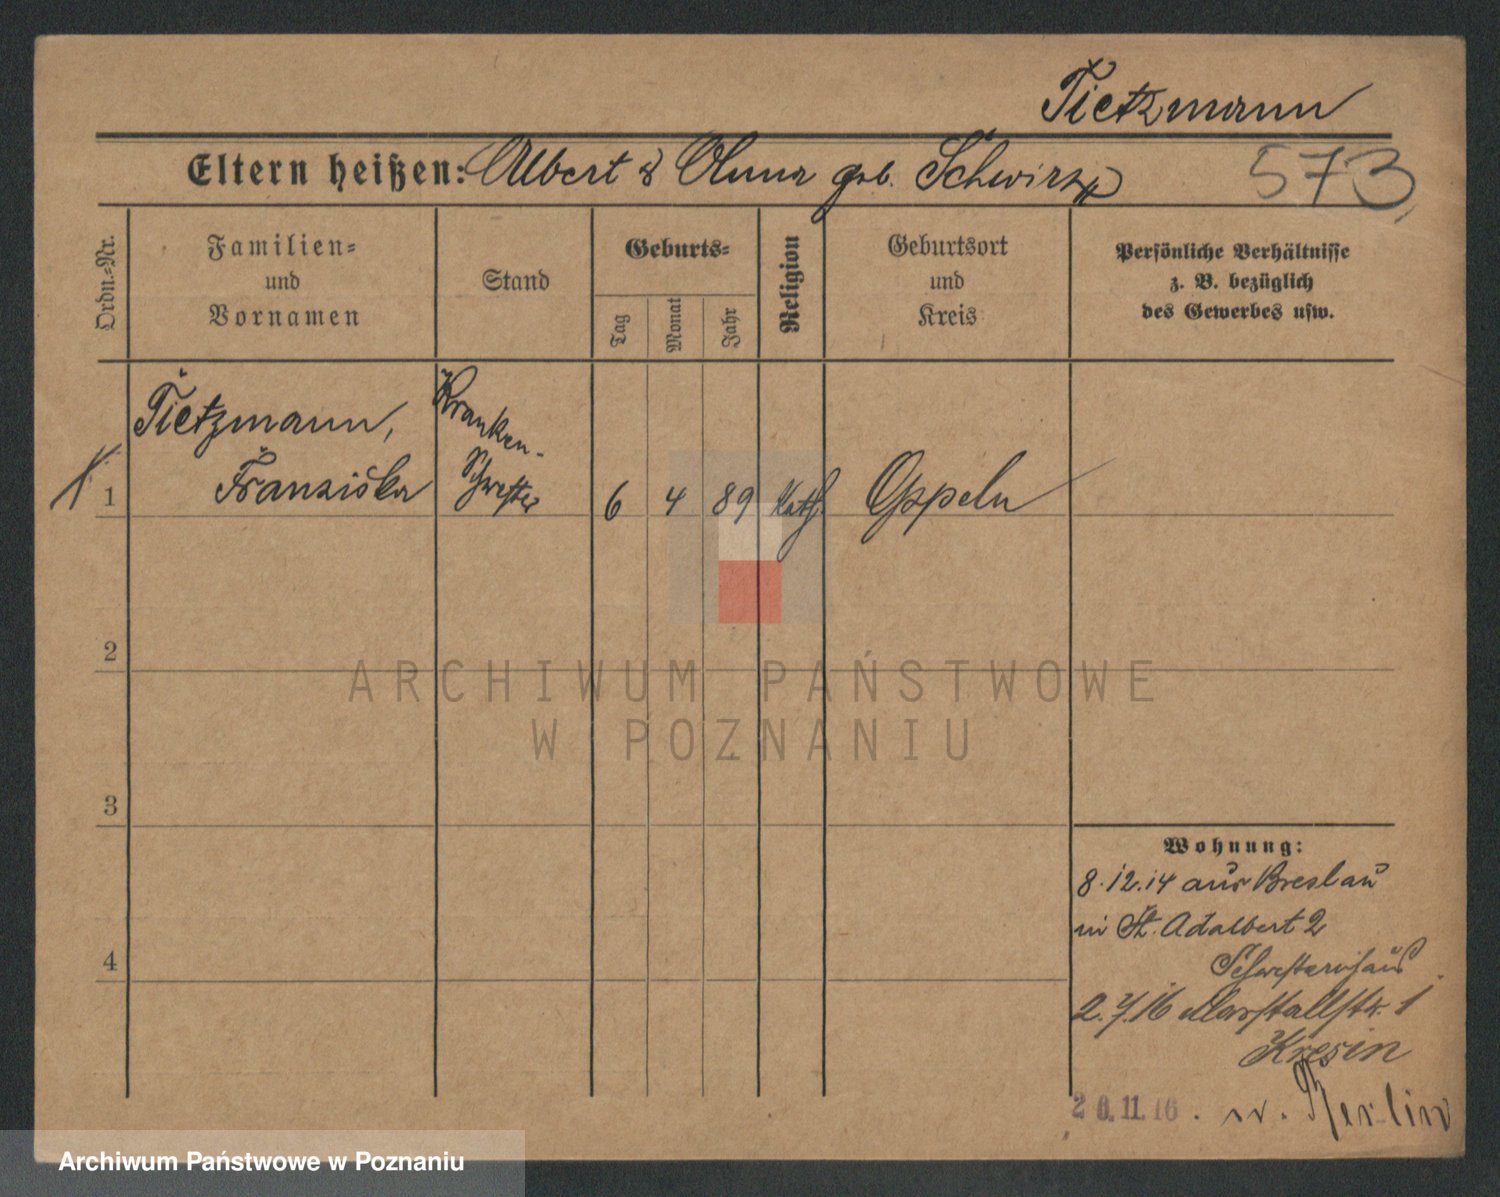 Tietzmann
Eltern heißen: Albert & Anna geb. Schwirz
573
Ordn.=Nr.
Familien=
und
Vornamen
Stand
Geburts=
Tag
Monat
Jahr
Religion
Geburtsort
und
Kreis
Persönliche Verhältnisse
z. B. bezüglich
des Gewerbes usw.
Tietzmann,
Franziska
Kranken-
Schwester
1
6 4 89 Kath. Oppeln
2
3
4
ARCHIWUM PAŃSTWOWE
W POZNANIU
Wohnung:
8.12.14 aus Breslau
in St. Adalbert 2
Schwesternhaus
2.7.16 Marstallstr. 1
Kresin
20.11.16. n. Berlin
Archiwum Państwowe w Poznaniu